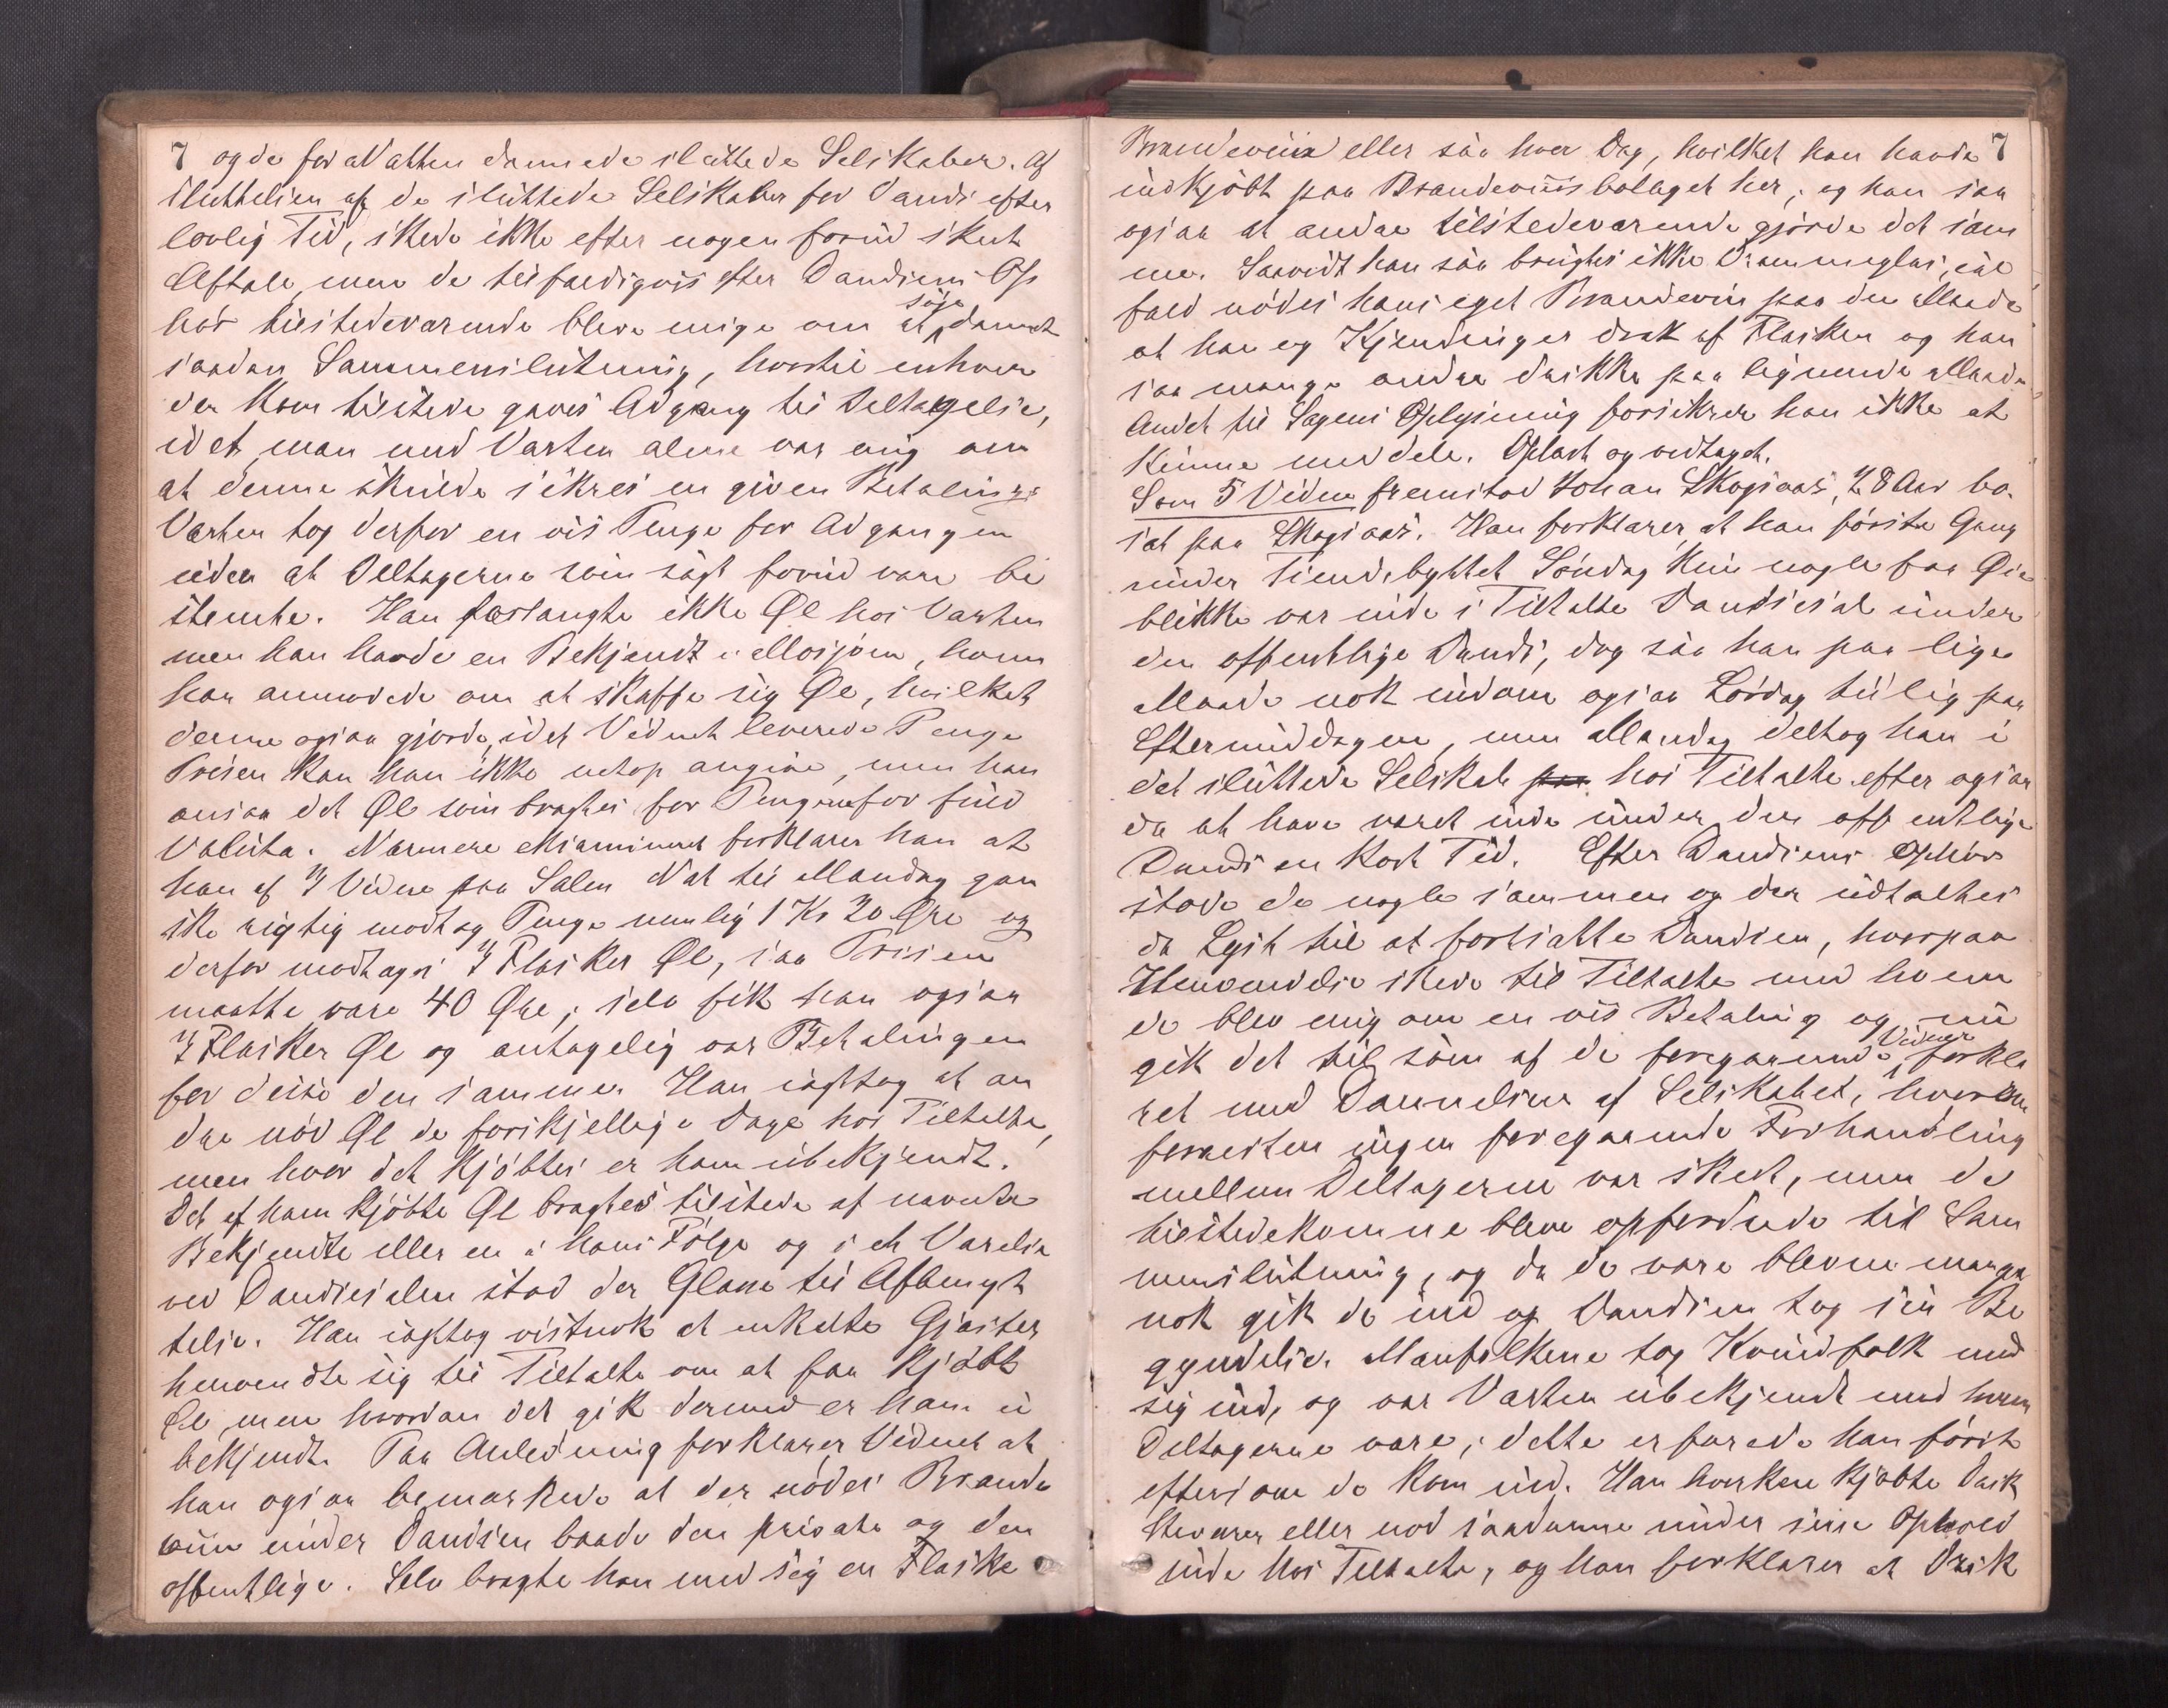 7 og de for Natten dannede sluttede Selskaber. Af
sluttelsen af de sluttede Selskaber for Dands efter
lovlig Tid, skede ikke efter nogen forud skeet
Aftale, men de tilfældigviis efter Dandsens Op
hør tilstedeværende bleve enige om at søge dannet
saadan Sammenslutning, hvortil enhver
der kom tilstede gaves Adgang til Deltagelse,
idet man med Værten alene var enig om
at denne skulde sikres en given Betaling.
Værten tog derfor en vis Penge for Adgangen
uden at Deltagerne som sagt forud vare be
stemte. Han forlangte ikke Øl hos Værten
men han havde en Bekjendt i Mosjøen, hvem
han anmodede om at skaffe sig Øl, hvilket
denne ogsaa gjorde, idet Vidnet leverede Penge
Prisen kan han ikke netop angive, men han
ansaa det Øl som bragtes for Pengene for fuld
Valuta. Nærmere examineret forklarer han at
han af 7 Vidne paa Salen Nat til Mandag gan
ske rigtig modtog Penge nemlig 1 Kr 20 Øre og
derfor modtoges 3 Flasker Øl, saa Prisen
maatte være 40 Øre; selv fik han ogsaa
3 Flasker Øl og antagelig var Betalingen
for disse den samme. Han iagttog at an
dre nød Øl de forskjellige Dage hos Tiltalte,
men hvor det kjøbtes er ham ubekjendt.
Det af ham kjøbte Øl bragtes tilstede af nævnte
Bekjendte eller en i hans Følge og i et Værelse
ved Dandsesalen stod der Glasse til Afbenyt
telse. Han iagttog vistnok at enkelte Gjæster
henvendte sig til Tiltalte om at faa kjøbt
Øl, men hvordan det gik dermed er ham u
bekjendt. Paa Anledning forklarer Vidnet at
han ogsaa bemærkede at der nødes Brænde
viin under Dandsen baade den private og den
offentlige. Selv bragte han med sig en Flaske
Brændeviin eller saa hver Dag, hvilket han havde 7
indkjøbt paa Brændeviisbolaget her; og han saa
ogsaa at andre tilstedeværende gjorde det sam
me. Saavidt han saa brugtes ikke Drammeglas, ial
fald nødes hans eget Brændeviin paa den Maade
at han og Kjendinger drak af Flasken og han
saa mange andre drikke paa lignende Maade.
Andet til Sagens Oplysning forsikrer han ikke at
kunne meddele. Oplæst og vedtaget.
Som 5 Vidne fremstod Johan Skogsaas, 28 Aar bo
sat paa Skogsaas. Han forklarer, at han første Gang
under Tiendebyttet Søndag kun nogle faa Øie
blikke var inde i Tiltalte Dandsesal under
den offentlige Dands, dog saa han paa lige
Maade nok indom ogsaa Lørdag tidlig paa
Eftermiddagen, men Mandag deltog han i
det sluttede Selskab hos Tiltalte efter ogsaa
da at have været inde under den offentlige
Dands en kort Tid. Efter Dandsens Ophør
stode de nogle sammen og der udtaltes
da Lyst til at fortsætte Dandsen, hvorpaa
Henvendelse skede til Tiltalte med hvem
de blev enig om en vis Betaling og nu
gik det til som af de foregaaende Vidner forkla
ret med Dannelsen af Selskabet, hvorom
forresten ingen foregaaende Forhandling
mellem Deltagerne var skeet, men de
tilstedekomne bleve opfordrede til Sam
menslutning, og da de vare blevne mange
nok gik de ind og Dandsen tog sin Be
gyndelse. Mandfolkene tog Kvindfolk med
sig ind, og var Værten ubekjendt med hvem
Deltagerne vare; dette erfarede han først
eftersom de kom ind. Han hverken kjøbte Drik
kevarer eller nød saadanne under sine Ophold
inde hos Tiltalte, og han forklarer at Drik